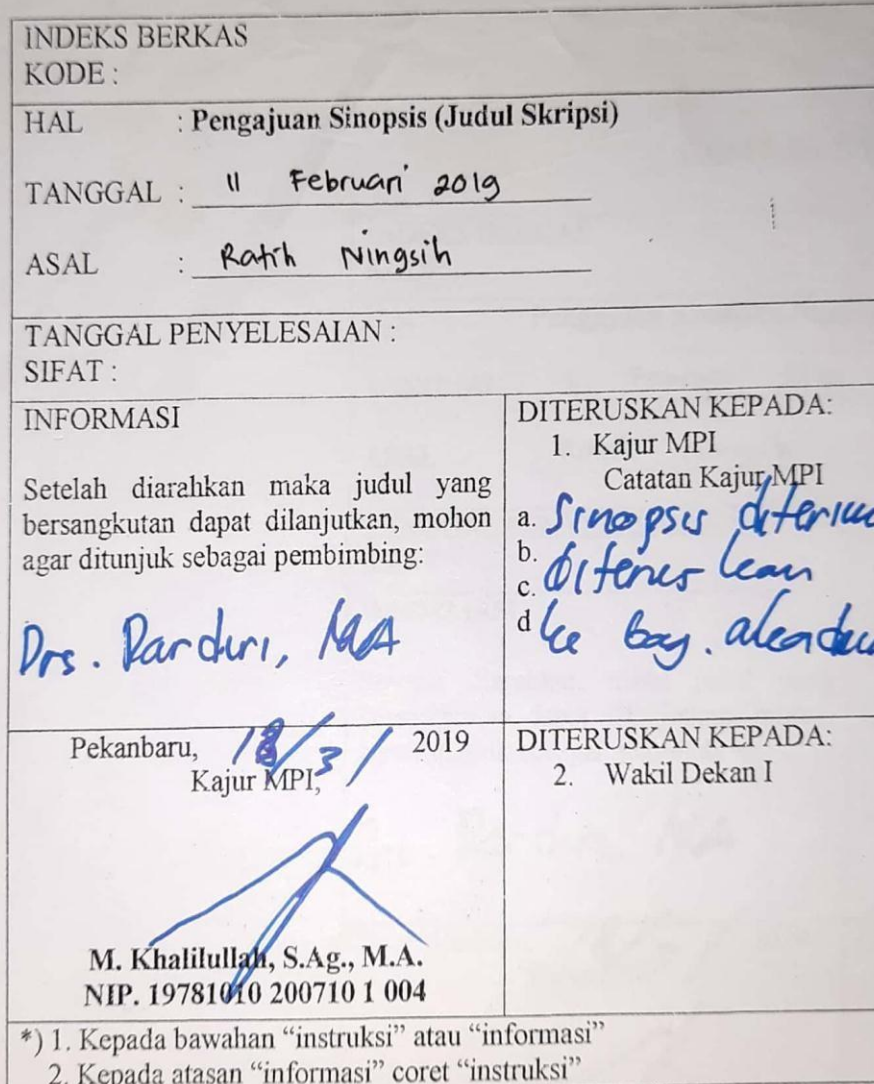 INDEKS BERKAS
KODE :
HAL : Pengajuan Sinopsis (Judul Skripsi)
TANGGAL : 11 Februari 2019
ASAL : Ratih Ningsih
TANGGAL PENYELESAIAN :
SIFAT :
INFORMASI
Setelah diarahkan maka judul yang
bersangkutan dapat dilanjutkan, mohon
agar ditunjuk sebagai pembimbing:
Drs. Darduri, MA
DITERUSKAN KEPADA:
1. Kajur MPI
Catatan Kajur MPI
a. Sinopsis diterima
b.
c. Diteruskan
d ke bag. akadem
Pekanbaru, 18/3/ 2019
Kajur MPI,
M. Khalilullah, S.Ag., M.A.
NIP. 19781010 200710 1 004
DITERUSKAN KEPADA:
2. Wakil Dekan I
*) 1. Kepada bawahan “instruksi” atau “informasi”
2. Kepada atasan “informasi” coret “instruksi”